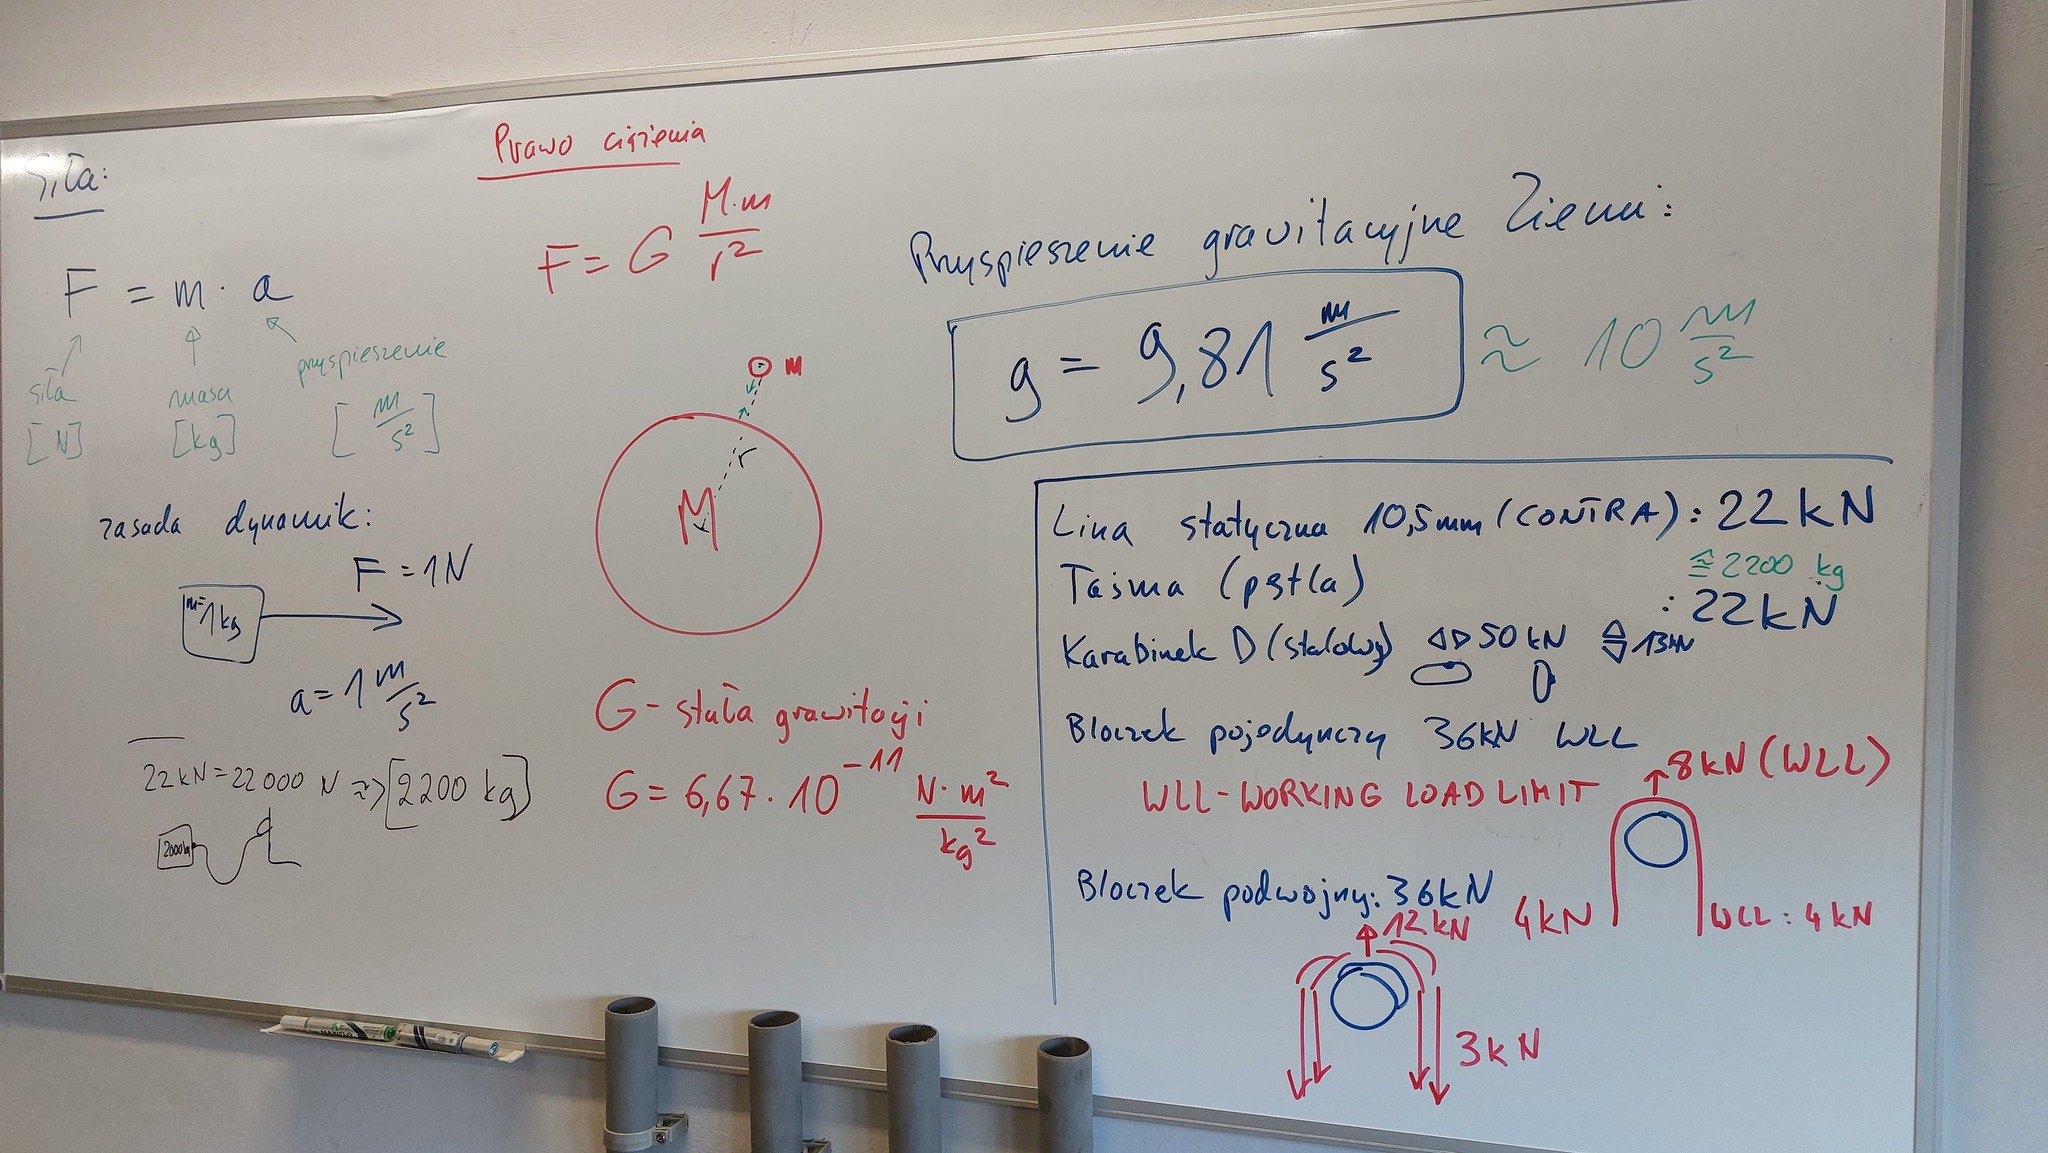 Siła:
F = m · a
siła
[N]
masa
[kg]
przyspieszenie
[m/s²]
zasada dynamik:
m=1kg
F=1N
a=1 m/s²
22kN=22000 N ≈>[2200 kg]
2000kg
Prawo ciążenia
F = G M·m/r²
m
r
M
G - stała grawitacji
G = 6,67·10⁻¹¹ N·m²/kg²
Przyspieszenie grawitacyjne Ziemi:
g = 9,81 m/s² ≈ 10 m/s²
Lina statyczna 10,5mm (CONTRA): 22kN
≙2200 kg
Taśma (pętla) : 22kN
Karabinek D (stalowy) ◁▷ 50 kN △▽ 13kN
Bloczek pojedynczy 36kN WLL
WLL-WORKING LOAD LIMIT
↑8kN (WLL)
4kN
WLL: 4kN
Bloczek podwojny: 36kN
↑12kN
3kN